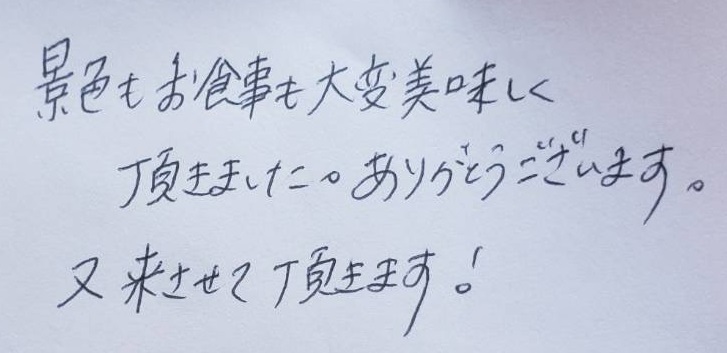 景色もお食事も大変美味しく
頂きました。ありがとうございます。
又来させて頂きます!